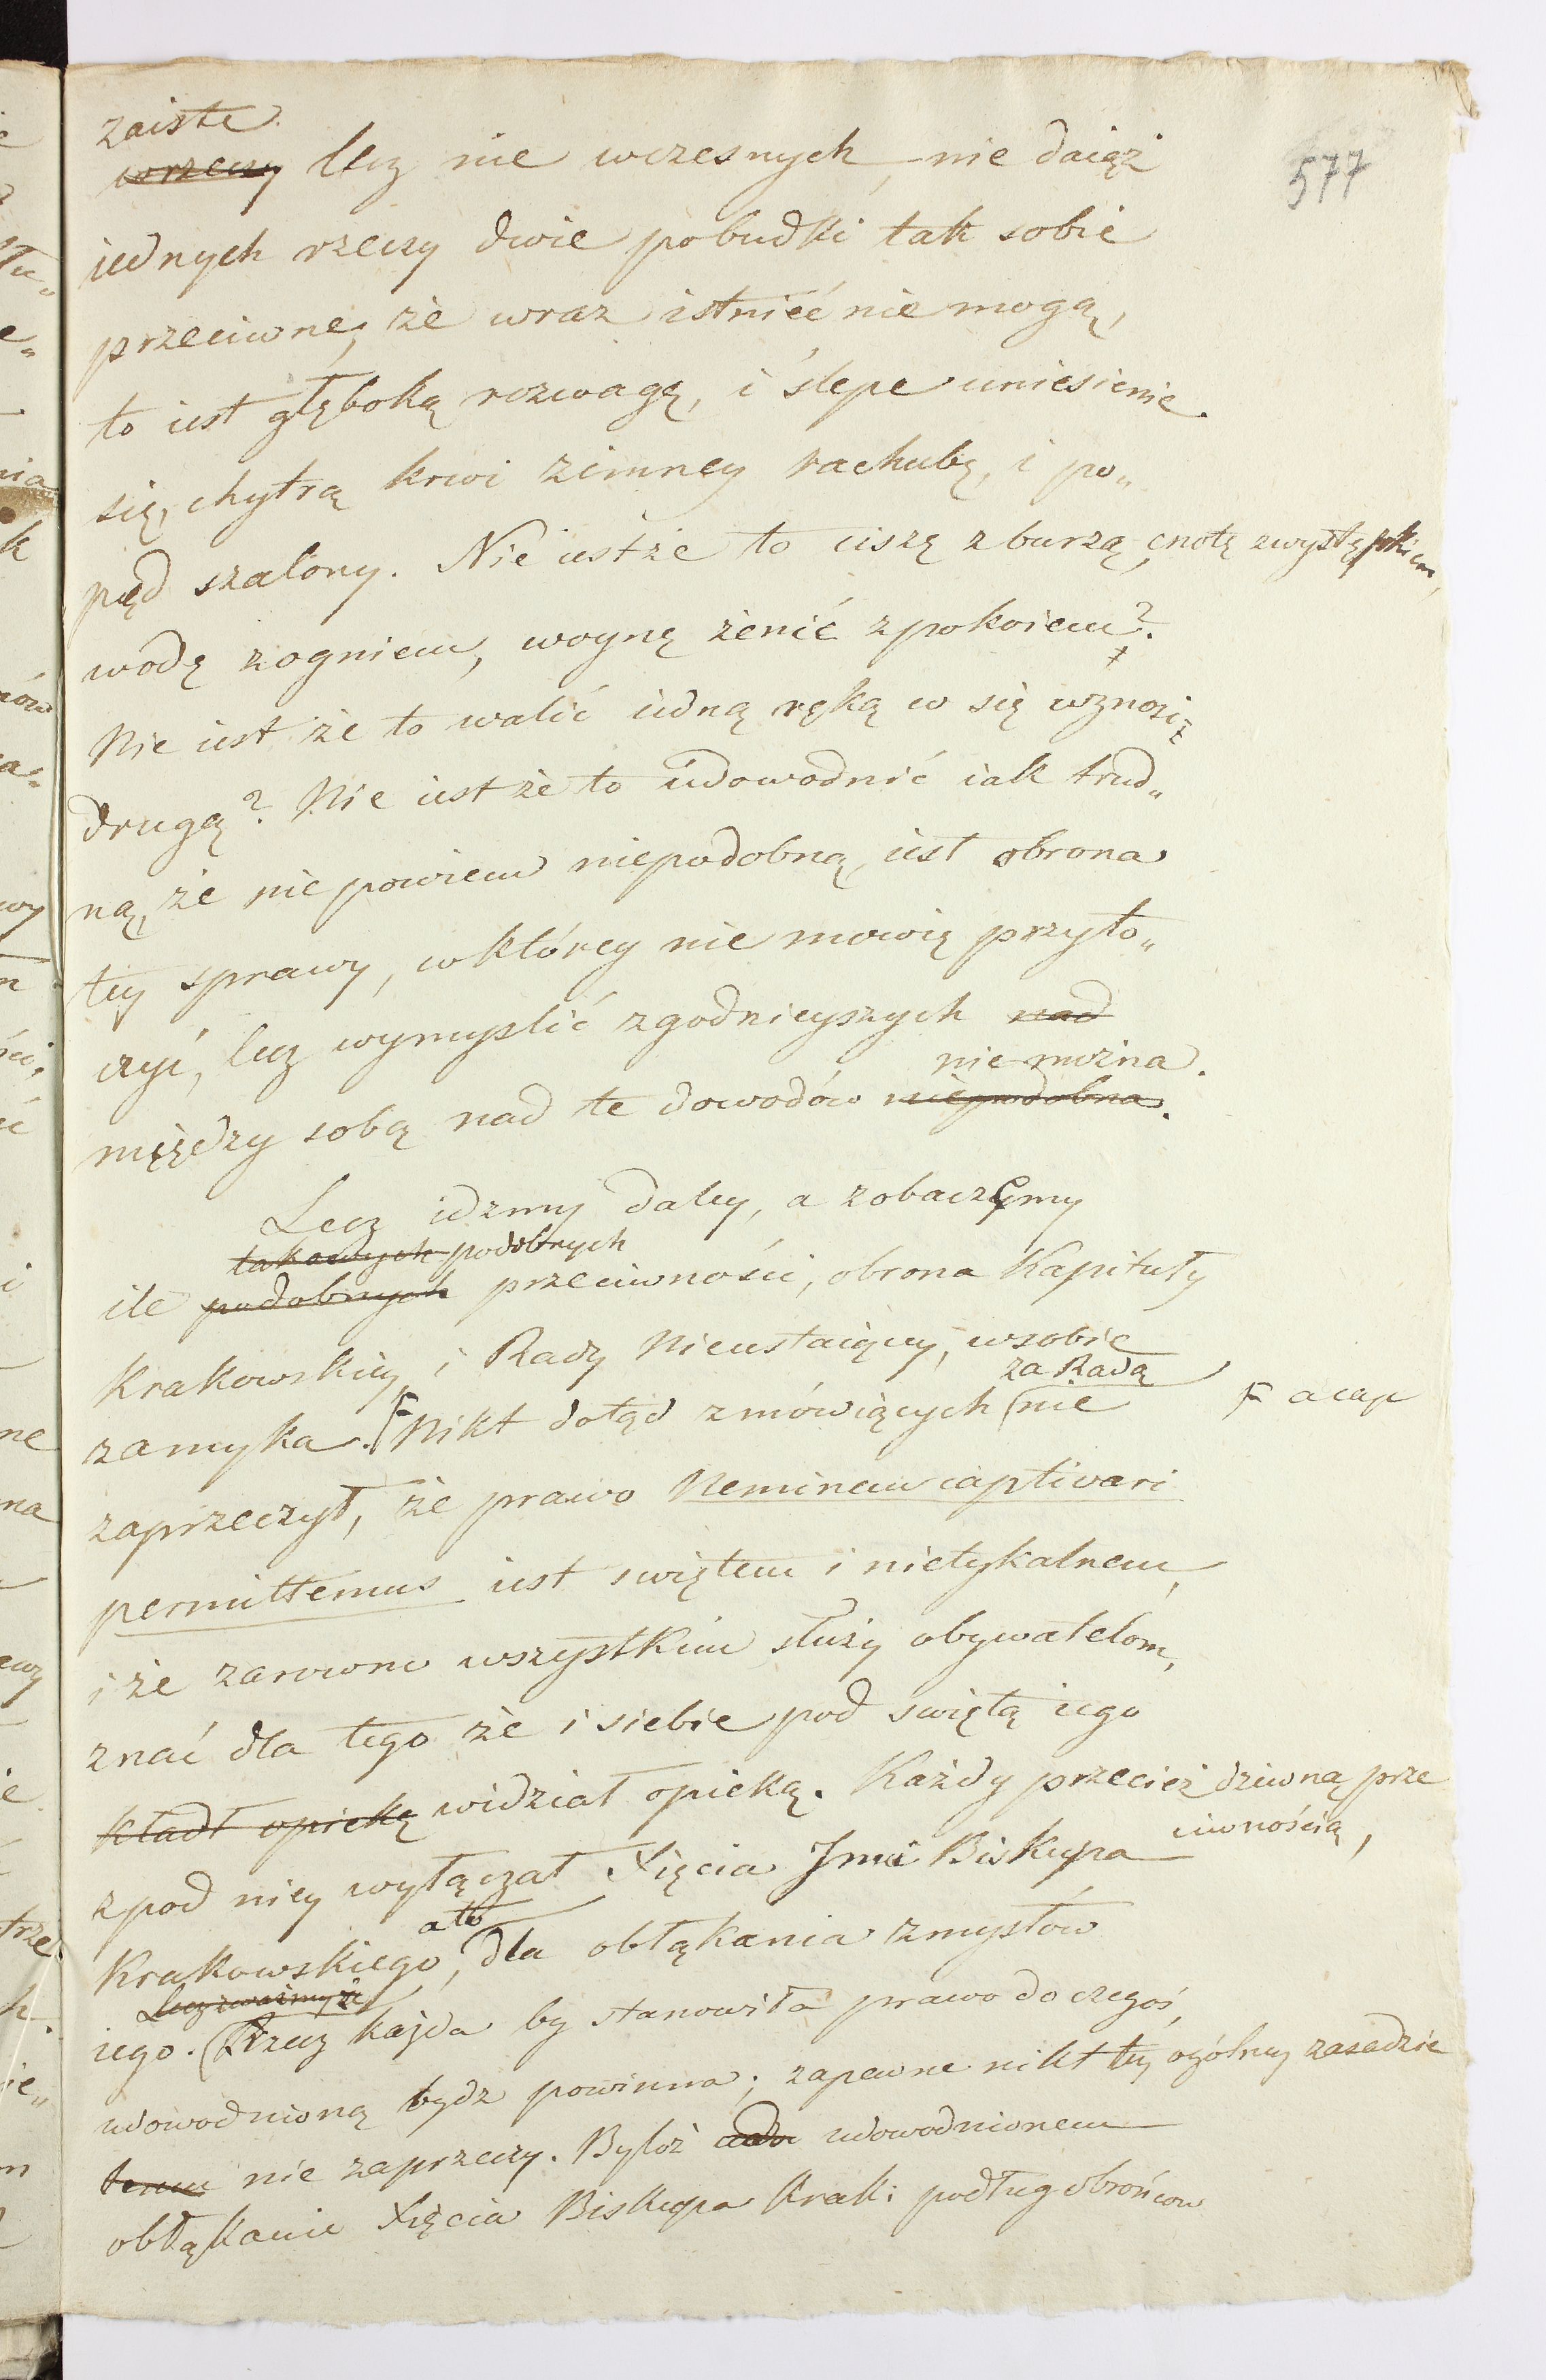 577
zaiste
wrzeczy lecz nie wczesnych, nie daiąż
iednych rzeczy dwie pobudki tak sobie
przeciwne, że wraz istnieć nie mogą,
to iest głęboką rozwagę, i ślepe uniesienie
się, chytrą krwi zimney rachubę, i po„
pęd szalony. Nie iestże to ciszę z burzą, cnotę z występkiem,
wodę z ogniem, woynę żenić z pokoiem?
Nie iest że to walić iedną ręką co się wznosi
drugą? Nie iest że to udowodnić iak trud„
ną, że nie powiem niepodobną, iest obrona
tey sprawy, w którey nie mowię przyto„
czyć, lecz wymyslić zgodnieyszych nad
nie można.
między sobą nad te dowodów niepodobna.
Lecz idzmy daley, a zobaczemy
takowych podobnych
ile podobnych przeciwności, obrona Kapituły
Krakowskiey i Rady Nieustaiącey, w sobie
za Radą
zamyka. F Nikt dotąd z mówiących nie F a cap
zaprzeczył, że prawo Neminem captivari
permittemus iest swiętem i nietykalnem,
i że zarowno wszystkim służy obywatelom,
znać dla tego że i siebie pod swiętą iego
kładł opieką widział opieką. Każdy przecież dziwną prze
ciwnością,
z pod niey wyłączał Xięcia Jmci Biskupa
a to
Krakowskiego, dla obłąkania zmysłów
Lecz zważmy że
iego. Rzecz każda by stanowiła prawo do czegoś,
udowodnioną bydz powinna; zapewne nikt tey ogólney zasadzie
temu nie zaprzeczy. Byłoż udowodnionem
obłąkanie Xięcia Biskupa Krak: podług obrońcow